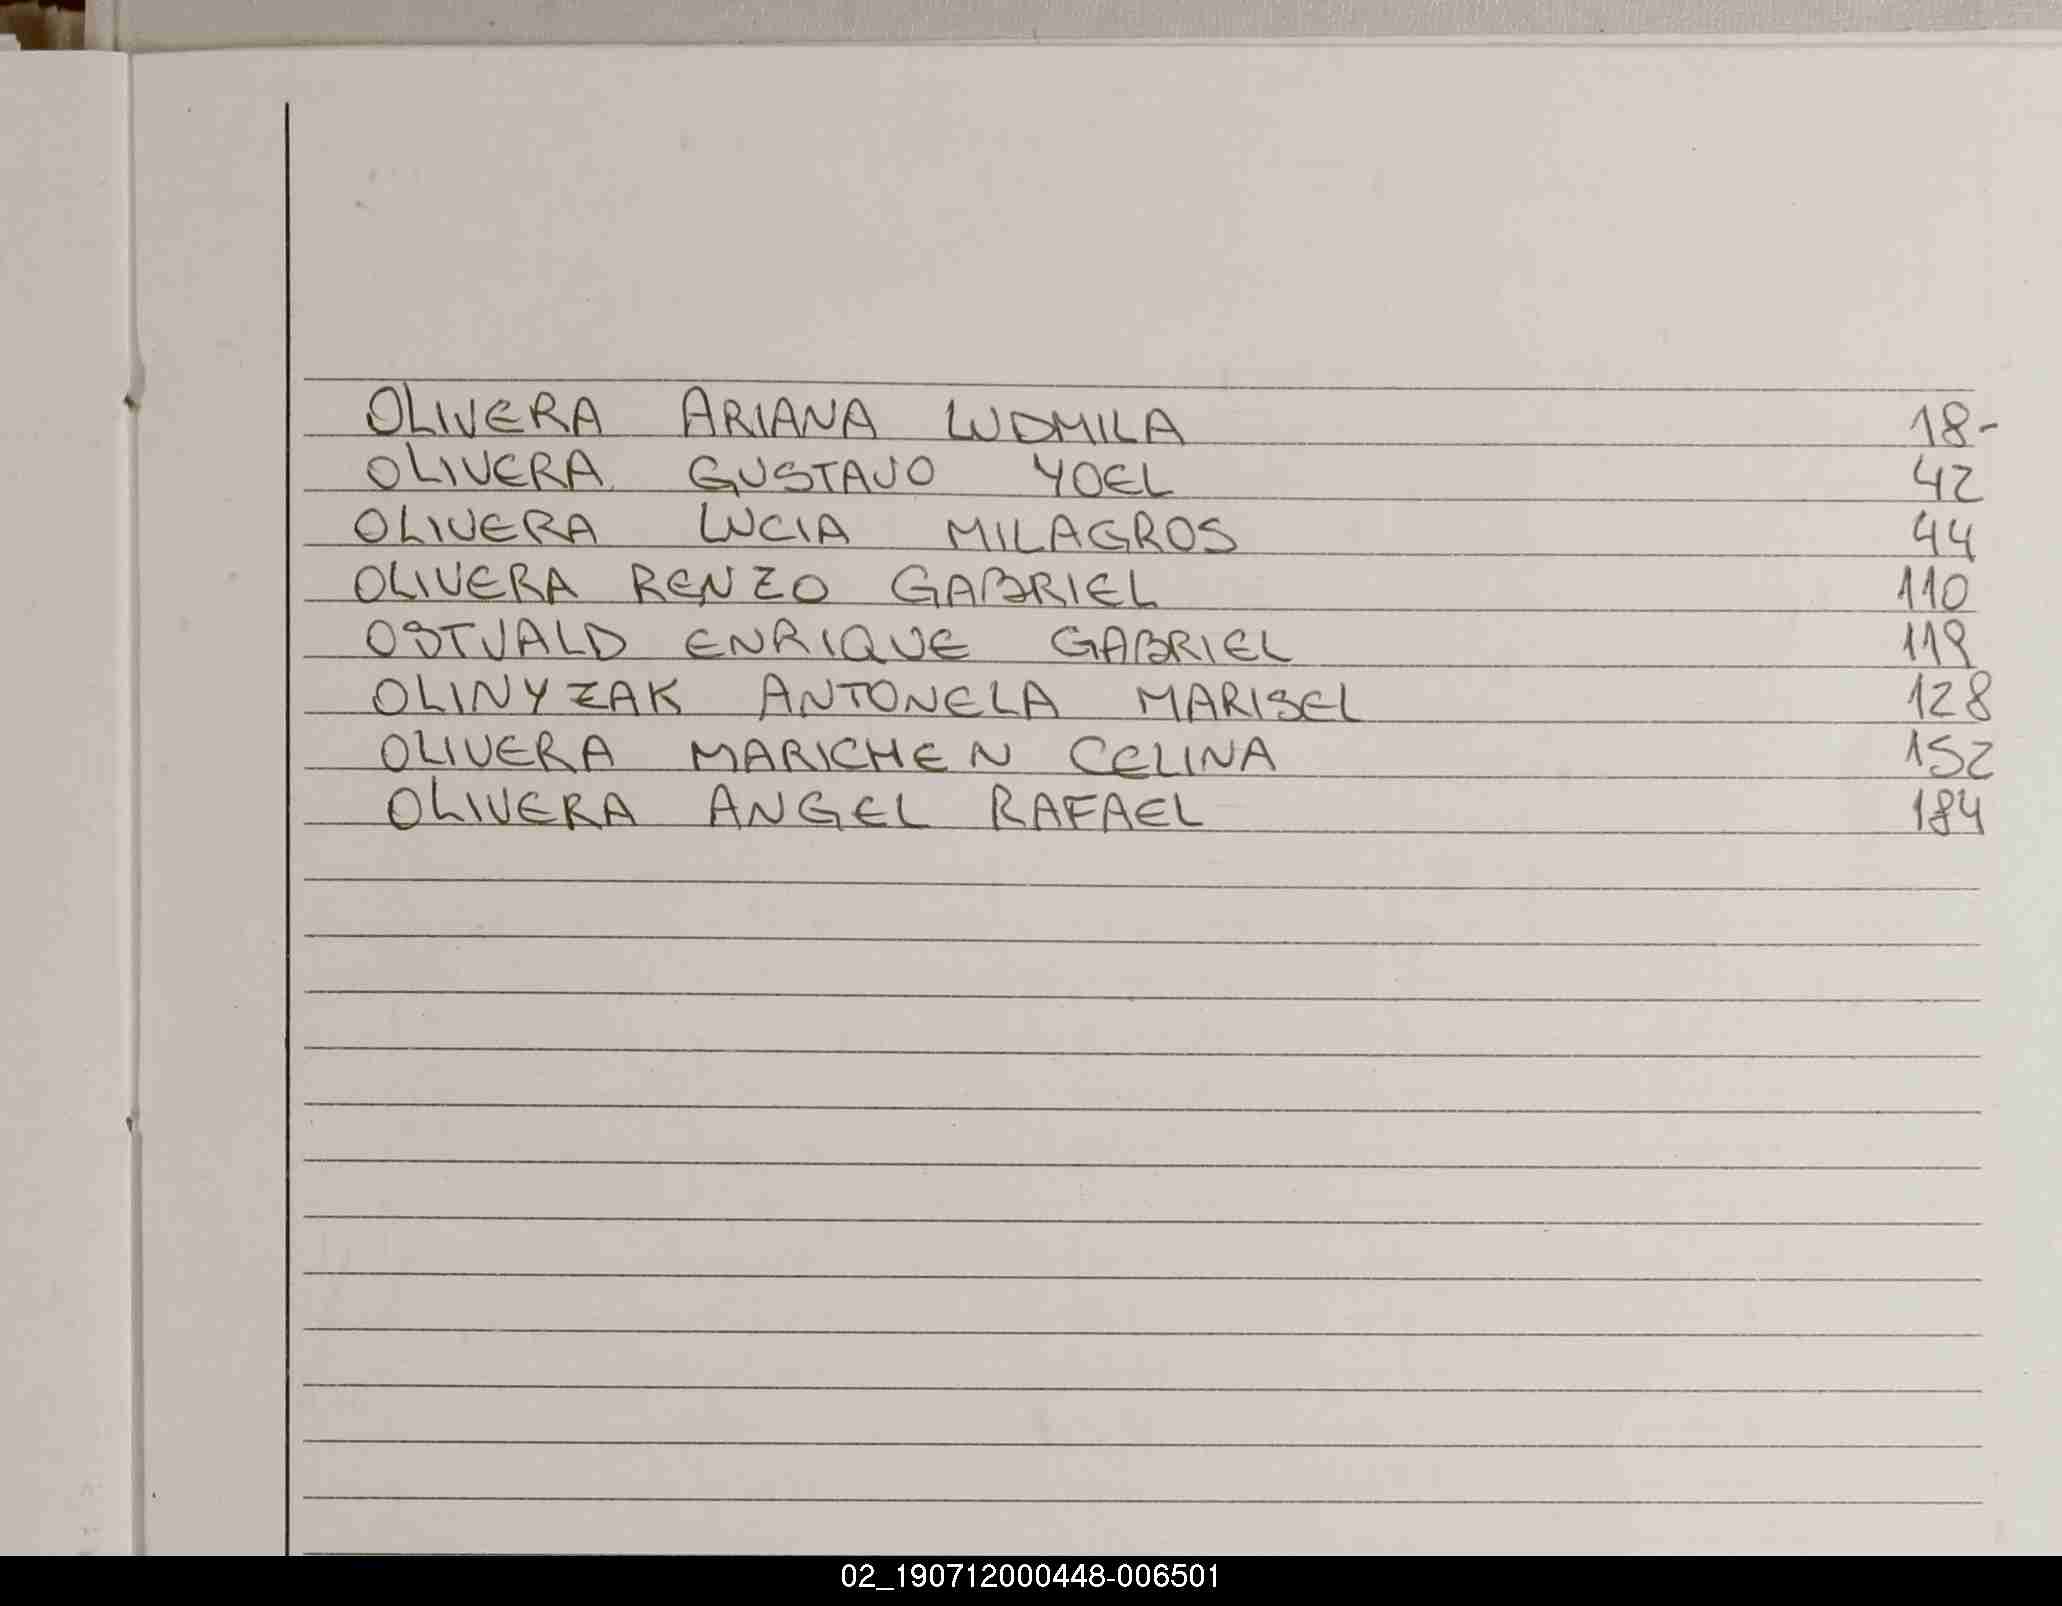 OLIVERA ARIANA LUDMILA 18-
OLIVERA GUSTAVO YOEL 42
OLIVERA LUCIA MILAGROS 44
OLIVERA RENZO GABRIEL 110
OSTVALD ENRIQUE GABRIEL 119
OLINYZAK ANTONELA MARISEL 128
OLIVERA MARICHEN CELINA 152
OLIVERA ANGEL RAFAEL 184
02_190712000448-006501